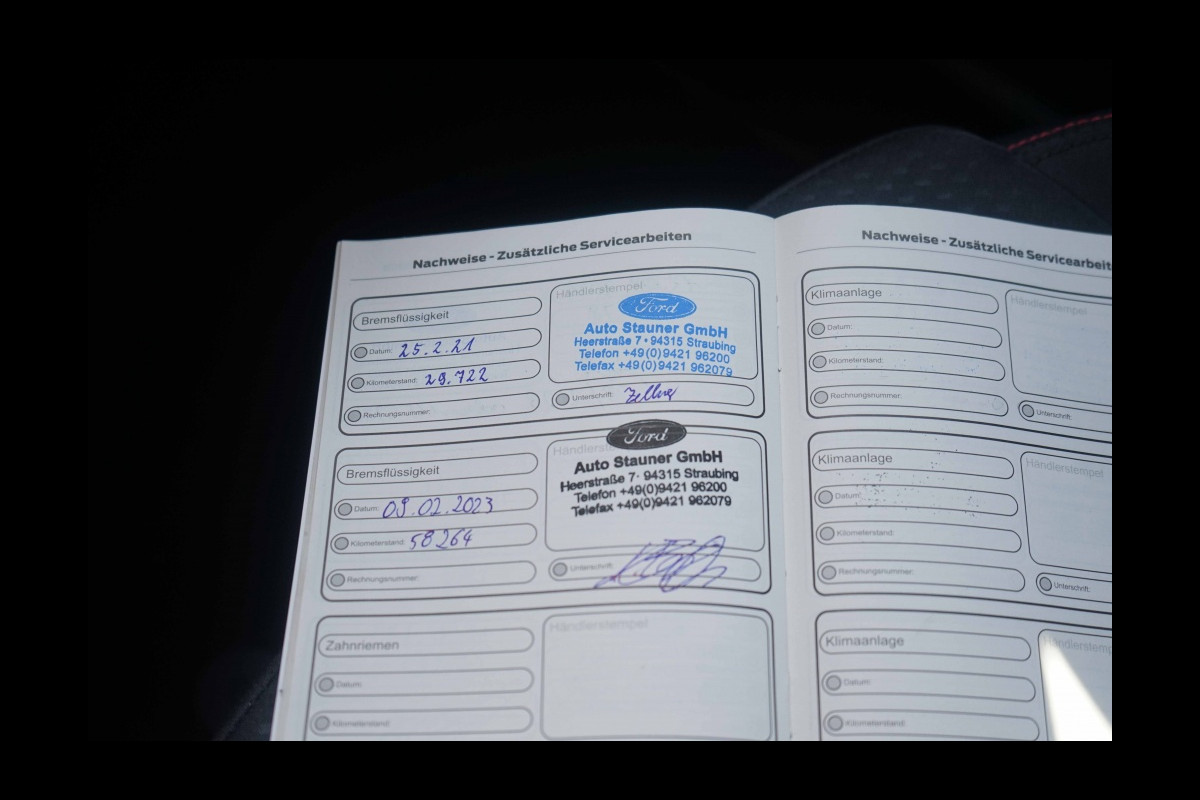 Nachweise - Zusätzliche Servicearbeiten
Bremsflüssigkeit
Datum: 25.2.21
Kilometerstand: 29.722
Rechnungsnummer:
Händlerstempel
Ford
Auto Stauner GmbH
Heerstraße 7 • 94315 Straubing
Telefon +49(0)9421 96200
Telefax +49(0)9421 962079
Unterschrift: Zellner
Bremsflüssigkeit
Datum: 09.02.2023
Kilometerstand: 58264
Rechnungsnummer:
Händlerstempel
Ford
Auto Stauner GmbH
Heerstraße 7 · 94315 Straubing
Telefon +49(0)9421 96200
Telefax +49(0)9421 962079
Unterschrift:
Zahnriemen
Datum:
Kilometerstand:
Händlerstempel
Nachweise - Zusätzliche Servicearbeit
Klimaanlage
Datum:
Kilometerstand:
Rechnungsnummer:
Händlerstempel
Unterschrift:
Klimaanlage
Datum:
Kilometerstand:
Rechnungsnummer:
Händlerstempel
Unterschrift:
Klimaanlage
Datum:
Kilometerstand:
Händlerstemp